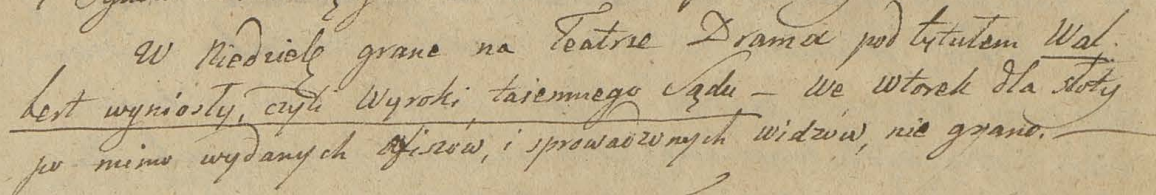 W Niedzielę grane na Teatrze Drama pod tytułem Wal
bert wyniosły, czyli Wyroki taiemnego Sądu – We Wtorek dla słoty
po mimo wydanych afiszów, i sprowadzonych widzów, nie grano. –